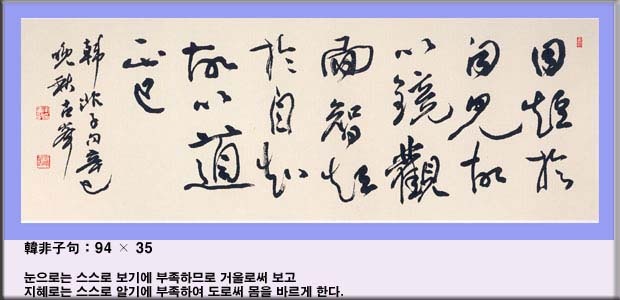 目短於
自見故
以鏡觀
面智短
於自知
故以道
正己
韓非子句辛巳
晩秋古峯
韓非子句 : 94 × 35
눈으로는 스스로 보기에 부족하므로 거울로써 보고
지혜로는 스스로 알기에 부족하여 도로써 몸을 바르게 한다.